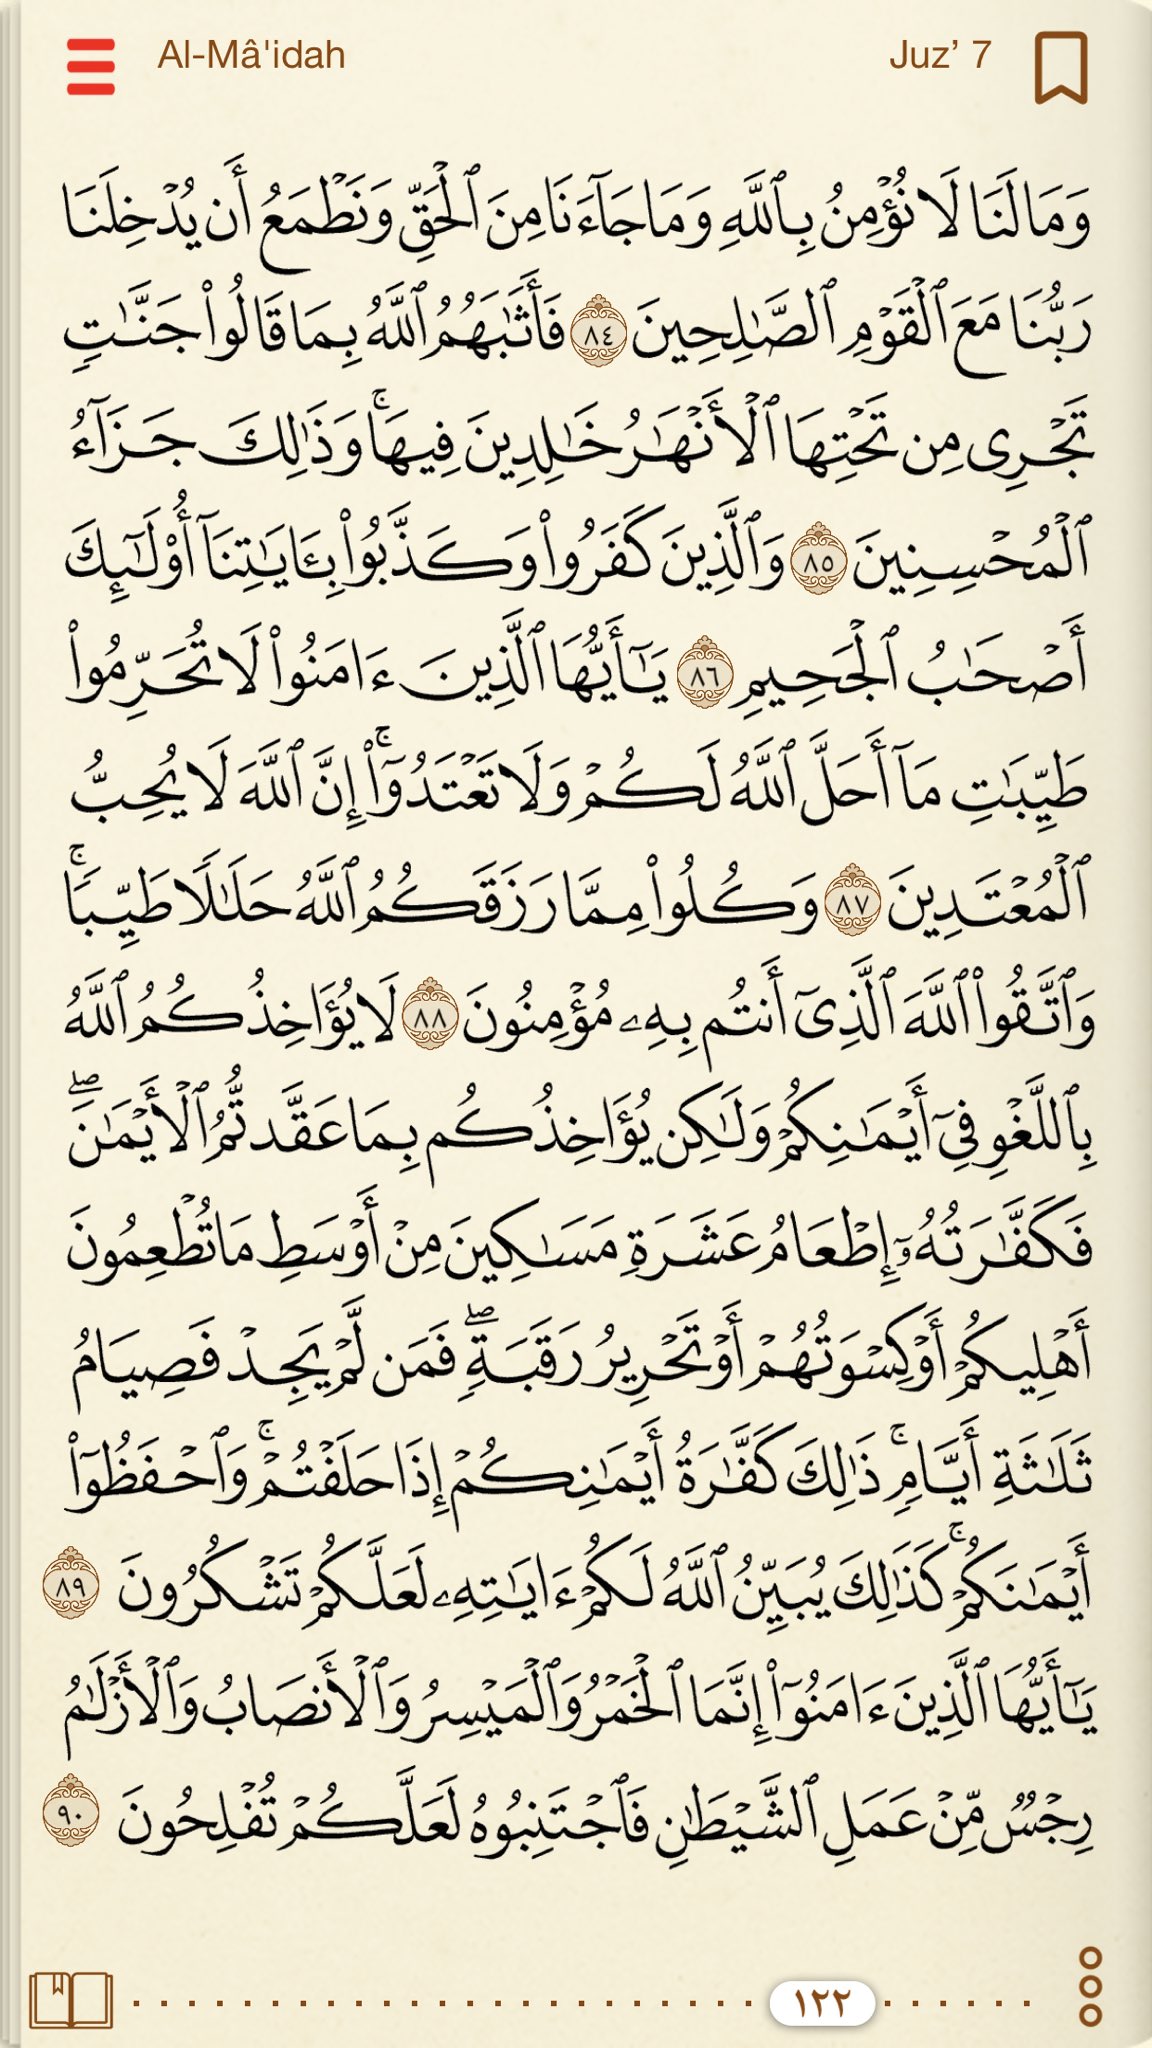 Al-Mâ'idah Juz’ 7
وَمَا لَنَا لَا نُؤْمِنُ بِٱللَّهِ وَمَا جَآءَنَا مِنَ ٱلْحَقِّ وَنَطْمَعُ أَن يُدْخِلَنَا
رَبُّنَا مَعَ ٱلْقَوْمِ ٱلصَّـٰلِحِينَ ٨٤ فَأَثَـٰبَهُمُ ٱللَّهُ بِمَا قَالُوا۟ جَنَّـٰتٍ
تَجْرِى مِن تَحْتِهَا ٱلْأَنْهَـٰرُ خَـٰلِدِينَ فِيهَا ۚ وَذَٰلِكَ جَزَآءُ
ٱلْمُحْسِنِينَ ٨٥ وَٱلَّذِينَ كَفَرُوا۟ وَكَذَّبُوا۟ بِـَٔايَـٰتِنَآ أُو۟لَـٰٓئِكَ
أَصْحَـٰبُ ٱلْجَحِيمِ ٨٦ يَـٰٓأَيُّهَا ٱلَّذِينَ ءَامَنُوا۟ لَا تُحَرِّمُوا۟
طَيِّبَـٰتِ مَآ أَحَلَّ ٱللَّهُ لَكُمْ وَلَا تَعْتَدُوٓا۟ ۚ إِنَّ ٱللَّهَ لَا يُحِبُّ
ٱلْمُعْتَدِينَ ٨٧ وَكُلُوا۟ مِمَّا رَزَقَكُمُ ٱللَّهُ حَلَـٰلًا طَيِّبًا ۚ
وَٱتَّقُوا۟ ٱللَّهَ ٱلَّذِىٓ أَنتُم بِهِۦ مُؤْمِنُونَ ٨٨ لَا يُؤَاخِذُكُمُ ٱللَّهُ
بِٱللَّغْوِ فِىٓ أَيْمَـٰنِكُمْ وَلَـٰكِن يُؤَاخِذُكُم بِمَا عَقَّدتُّمُ ٱلْأَيْمَـٰنَ ۖ
فَكَفَّـٰرَتُهُۥٓ إِطْعَامُ عَشَرَةِ مَسَـٰكِينَ مِنْ أَوْسَطِ مَا تُطْعِمُونَ
أَهْلِيكُمْ أَوْ كِسْوَتُهُمْ أَوْ تَحْرِيرُ رَقَبَةٍ ۖ فَمَن لَّمْ يَجِدْ فَصِيَامُ
ثَلَـٰثَةِ أَيَّامٍ ۚ ذَٰلِكَ كَفَّـٰرَةُ أَيْمَـٰنِكُمْ إِذَا حَلَفْتُمْ ۚ وَٱحْفَظُوٓا۟
أَيْمَـٰنَكُمْ ۚ كَذَٰلِكَ يُبَيِّنُ ٱللَّهُ لَكُمْ ءَايَـٰتِهِۦ لَعَلَّكُمْ تَشْكُرُونَ ٨٩
يَـٰٓأَيُّهَا ٱلَّذِينَ ءَامَنُوٓا۟ إِنَّمَا ٱلْخَمْرُ وَٱلْمَيْسِرُ وَٱلْأَنصَابُ وَٱلْأَزْلَـٰمُ
رِجْسٌ مِّنْ عَمَلِ ٱلشَّيْطَـٰنِ فَٱجْتَنِبُوهُ لَعَلَّكُمْ تُفْلِحُونَ ٩٠
١٢٢